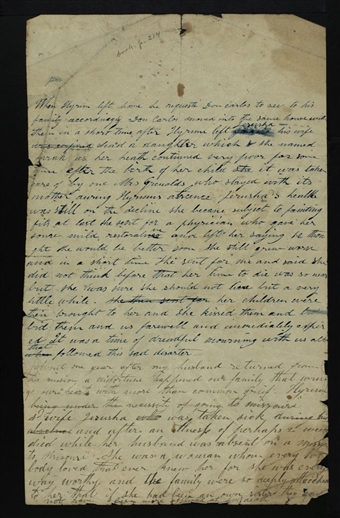 book. p. 254
When Hyrum left home he requests Don Carlos to see to his
family accordingly Don Carlos moved into the same house with
them in a short time after Hyrum left Jerusha his wife
had a daughter which she named
Sarah as her heath continued very poor for some
time after the birth of her child the it was taken
care of by one Mrs Grenolds who stayed with its
mother during Hyrums absence Jerusha's health
was still on the decline she became subject to fainting
fits at last she sent for a physician who gave her
some mild restorative and left her saying he thou
ght she would be better soon She still grew worse
and in a short time She sent for me and said She
did not think before that her time to die was so near
but she was sure she should not live but a very
little while. She then sent for her children were
then brought to her and She kissed them and
bid them and us farewell and immediately expir
ed it was a time of dreadful mourning with us all
that followed this sad disaster
about one year after my husband returned from
his mission a misfortune happened our family that wrung
our hearts with more than common grief Hyrum
being under the necessity of going to missouri
his wife Jerusha was taken sick
and after an illness of perhaps 2 weeks
died while her husband was absent on a mission
to Missouri She was a woman whom every bo
dy loved that ever knew her for she was every
way worthy and the family were so deeply attached
to her that if she had been an own sister they could
not have been more